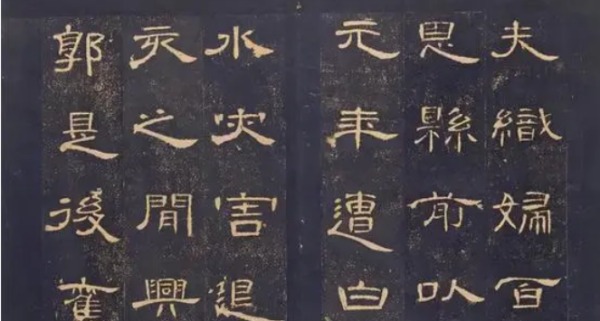 夫織婦百
恩縣前以
元年遭白
水灾害退
亥之間興
郭是後舊